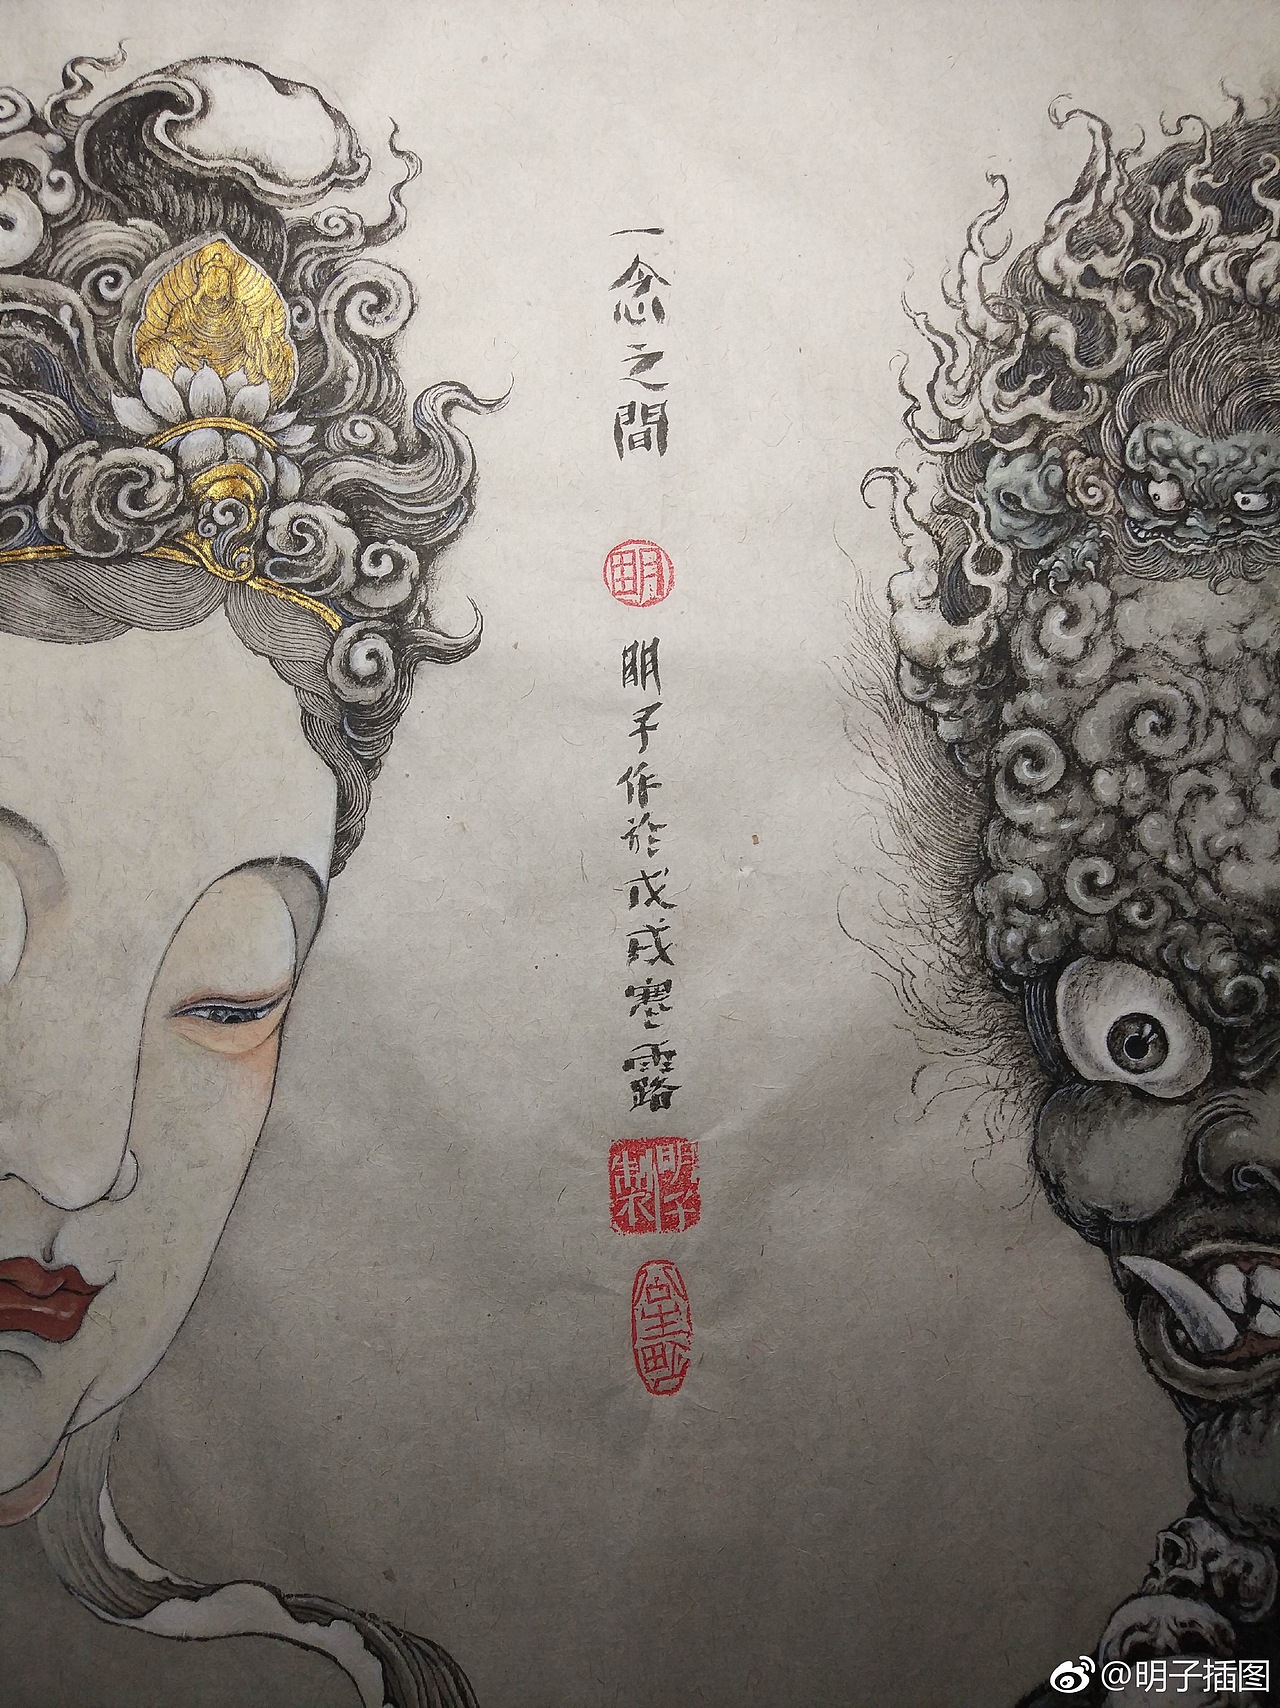 一念之間
明
明子作於戊戌寒露
明子製
@明子插图